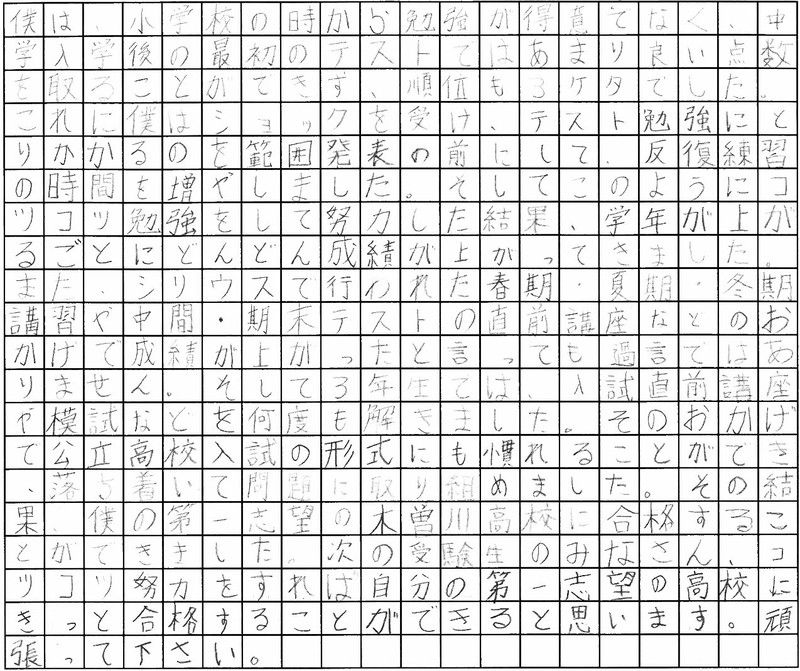 僕は、小学校の時から勉強が得意でなく、中
学入学後の最初のテストではあまり良い点数
を取ることができず、順位も3ケタでした。
これに僕はショックを受け、テスト勉強にと
りかかるのを範囲発表の前にして、反復練習
の時間を増やしました。そしてこのようにコ
ツコツ勉強をして努力した結果、学年が上が
るごとにどんどん成績が上がってきました。
また、シリウスで行われた春期・夏期・冬期
講習や中間・期末テストの直前講座などのお
かげで成績が上がったと言っても過言ではあ
りません。そして3年生では、入試直前講座
や模試などを何度も解きました。そのおかげ
で公立高校入試の形式にも慣れることができ
、落ち着いて問題に取り組めました。その結
果、僕の第一志望の木曽川高校に合格するこ
とができました。次の受験生のみなさん、コ
ツコツ努力をすれば自分の第一志望の高校に
きっと合格することができると思います。頑
張って下さい。